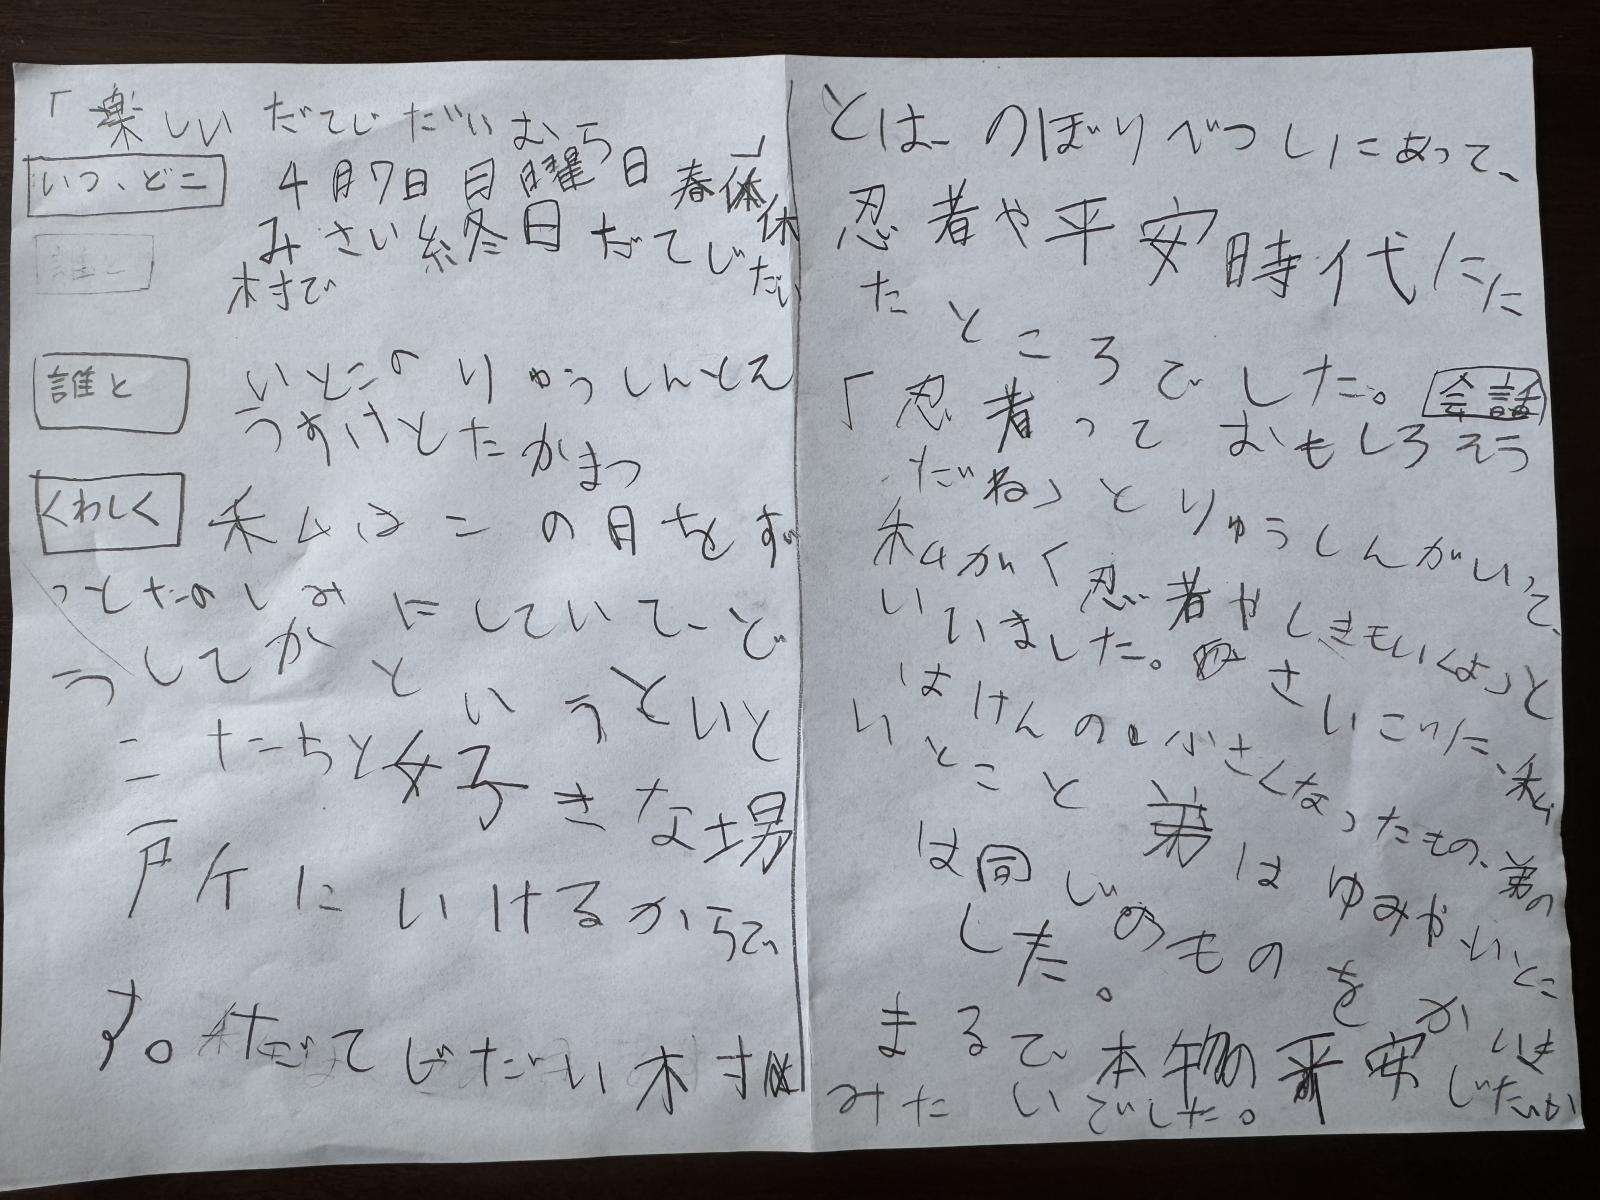 「楽しいだてじだいむら」
いつ、どこ
4月7日日曜日春休
みさい終日だてじだい
村で
誰と
誰と
いとこのりゅうしんとえ
うすけとたかまつ
くわしく
私はこの日をず
っとたのしみにしていて、ど
うしてかというといと
こたちと好きな場
所にいけるからで
す。だてじだい村
とは、のぼりべつしにあって、
忍者や平安時代にに
たところでした。
会話
「忍者っておもしろそう
だね」とりゅうしんがいって、
私がく忍者やしきもいくよ」と
いいました。さいごに、私
はけんの小さくなったもの、弟の
いとこと弟はゆみやいとこ
は同じのものをかいま
した。
まるで本物の平安じだいか
みたいでした。